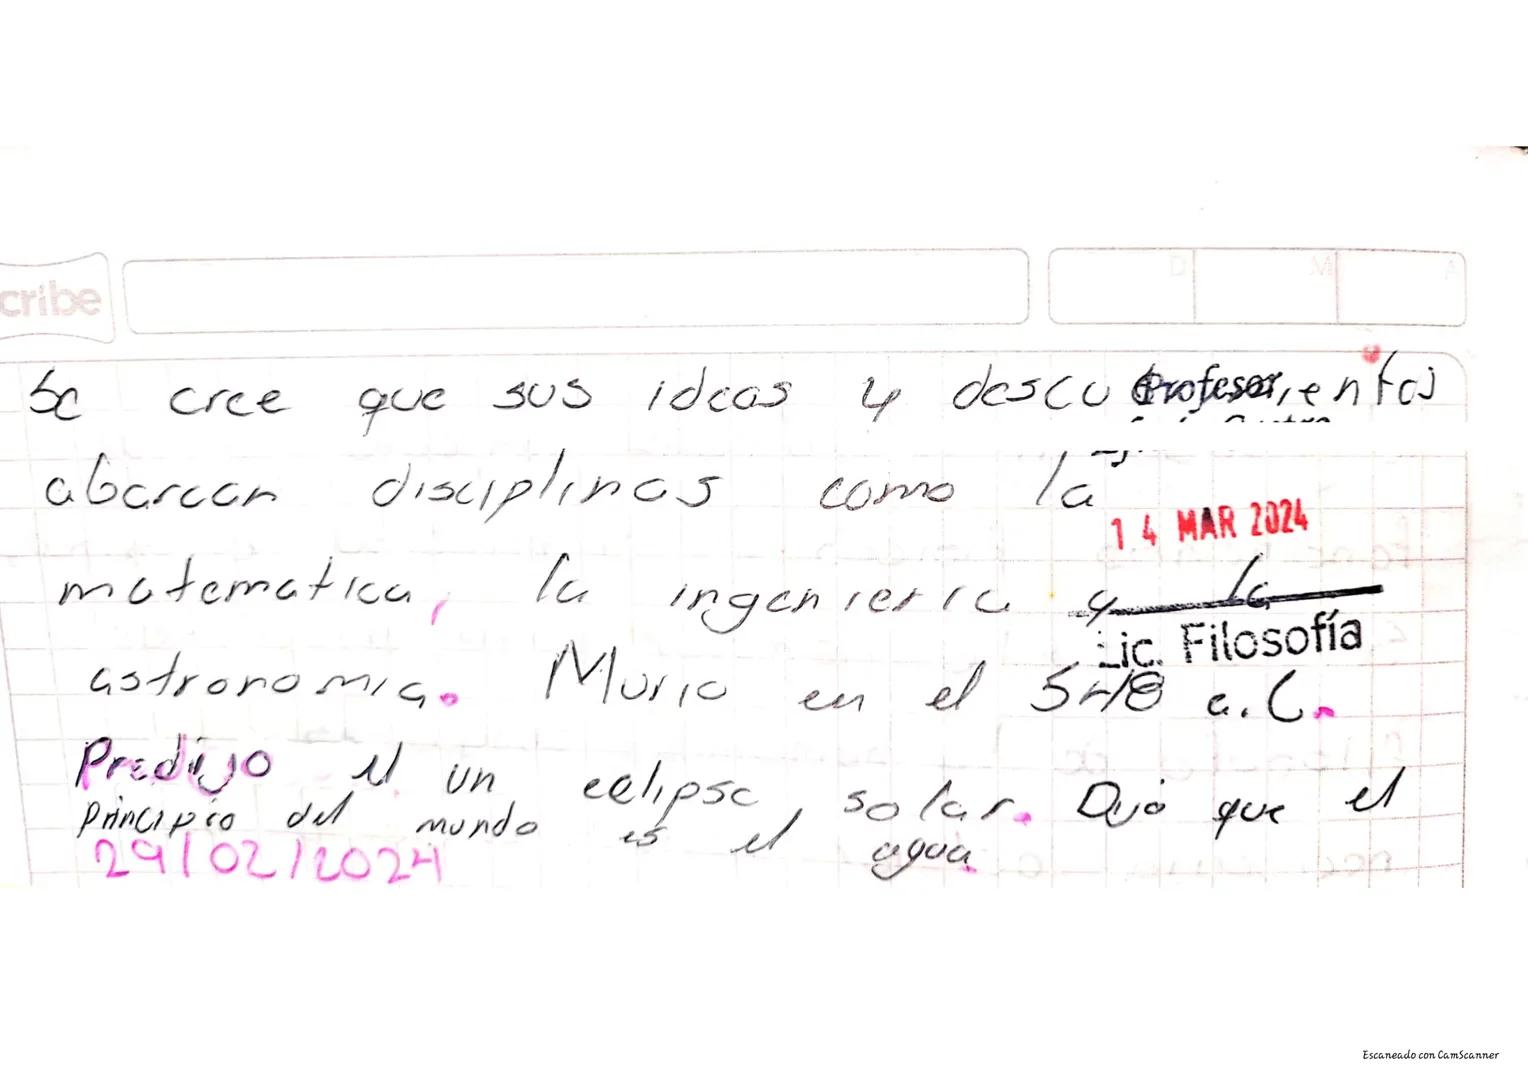 cribe
D M A
Se cree que sus ideas y descu Profesor, entos
abarcan disciplinas como la
14 MAR 2024
matematica, la ingenieria y la
Lic. Filosofía
astronomia. Murio en el 548 a.C.
Predijo el un eclipse, solar. Dijo que el
principio del mundo es el agua.
29/02/2024
Escaneado con CamScanner